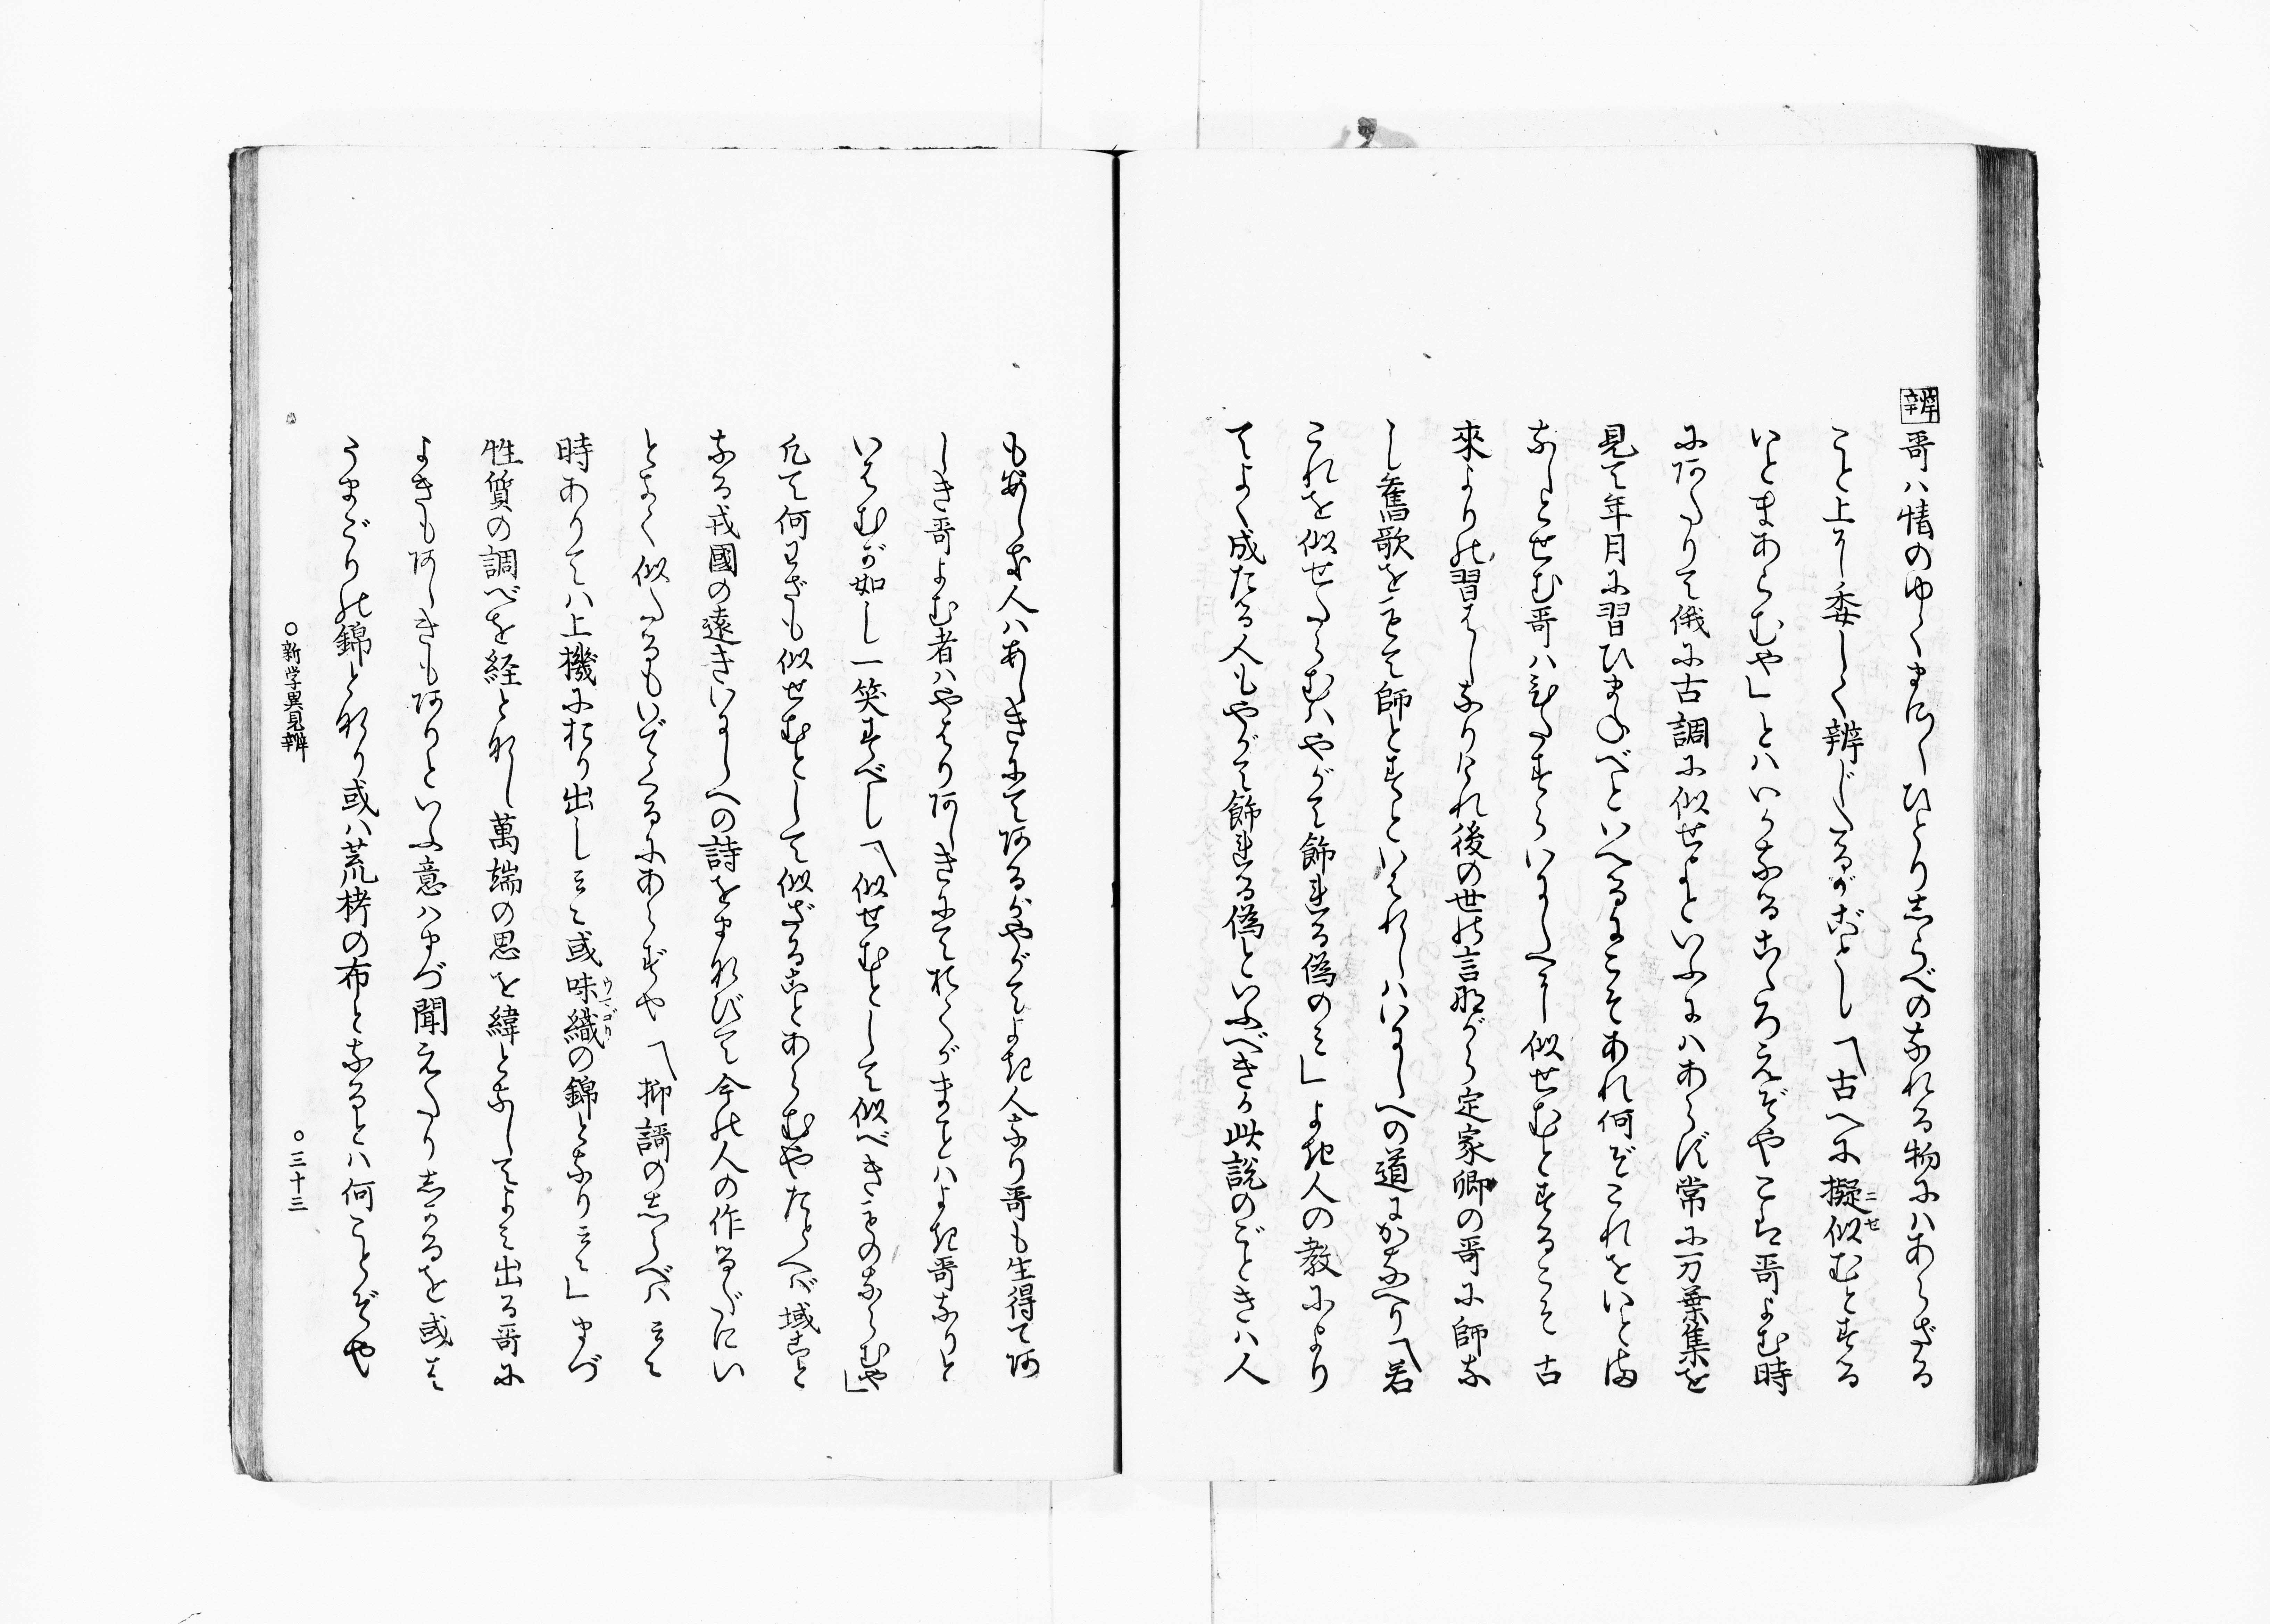 辨 哥ハ情のゆくまに〳〵ひとりしらべのなれる物にハあらざる
こと上に委しく辨じたるがごとし「古へに擬似むとする
いとまあらむや」とハいかなるこゝろえぞやこは哥よむ時
にあたりて俄に古調に似せよといふにハあらず常に万葉集を
見て年月に習ひまねべといへるにこそあれ何ぞこれをいとま
なしとせむ哥ハひたすらいにしへに似せむとするこそ古
來よりの習はしなりけれ後の世の言ながら定家卿の哥に師な
し舊歌をもて師とすといはれしハいにしへの道にかなへり「若
これを似せたらむハやがて飾れる偽のミ」よき人の教により
てよく成たる人もやがて飾れる偽といふべきか此説のごときハ人
も安しき人ハあしきにてあるがやがてよき人なり哥も生得てあ
しき哥よむ者ハやはりあしきにておくがまことハよき哥なりと
いはむが如し一笑すべし「似せむとして似べきものならむや」
凡て何わざも似せむとして似ざることあらむやたとへバ域こと
なる戎國の遠きいにしへの詩をまねびて今の人の作るだにい
となく似たるもいでくるにあらずや「抑謌のしらべハ云々
時ありてハ上機におり出し云々或味織の錦となり云々」まづ
性質の調べを経となし萬端の思を緯となしてよミ出る哥に
よきもあしきもありといふ意ハまづ聞えたりしかるを或は
うまごりの錦となり或ハ荒栲の布となるとハ何ことぞや
○新学異見辨
○三十三